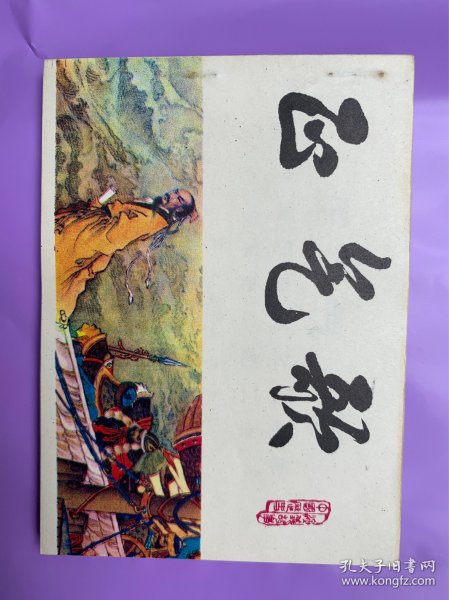 正气歌
孔夫子旧书网
www.kongfz.com